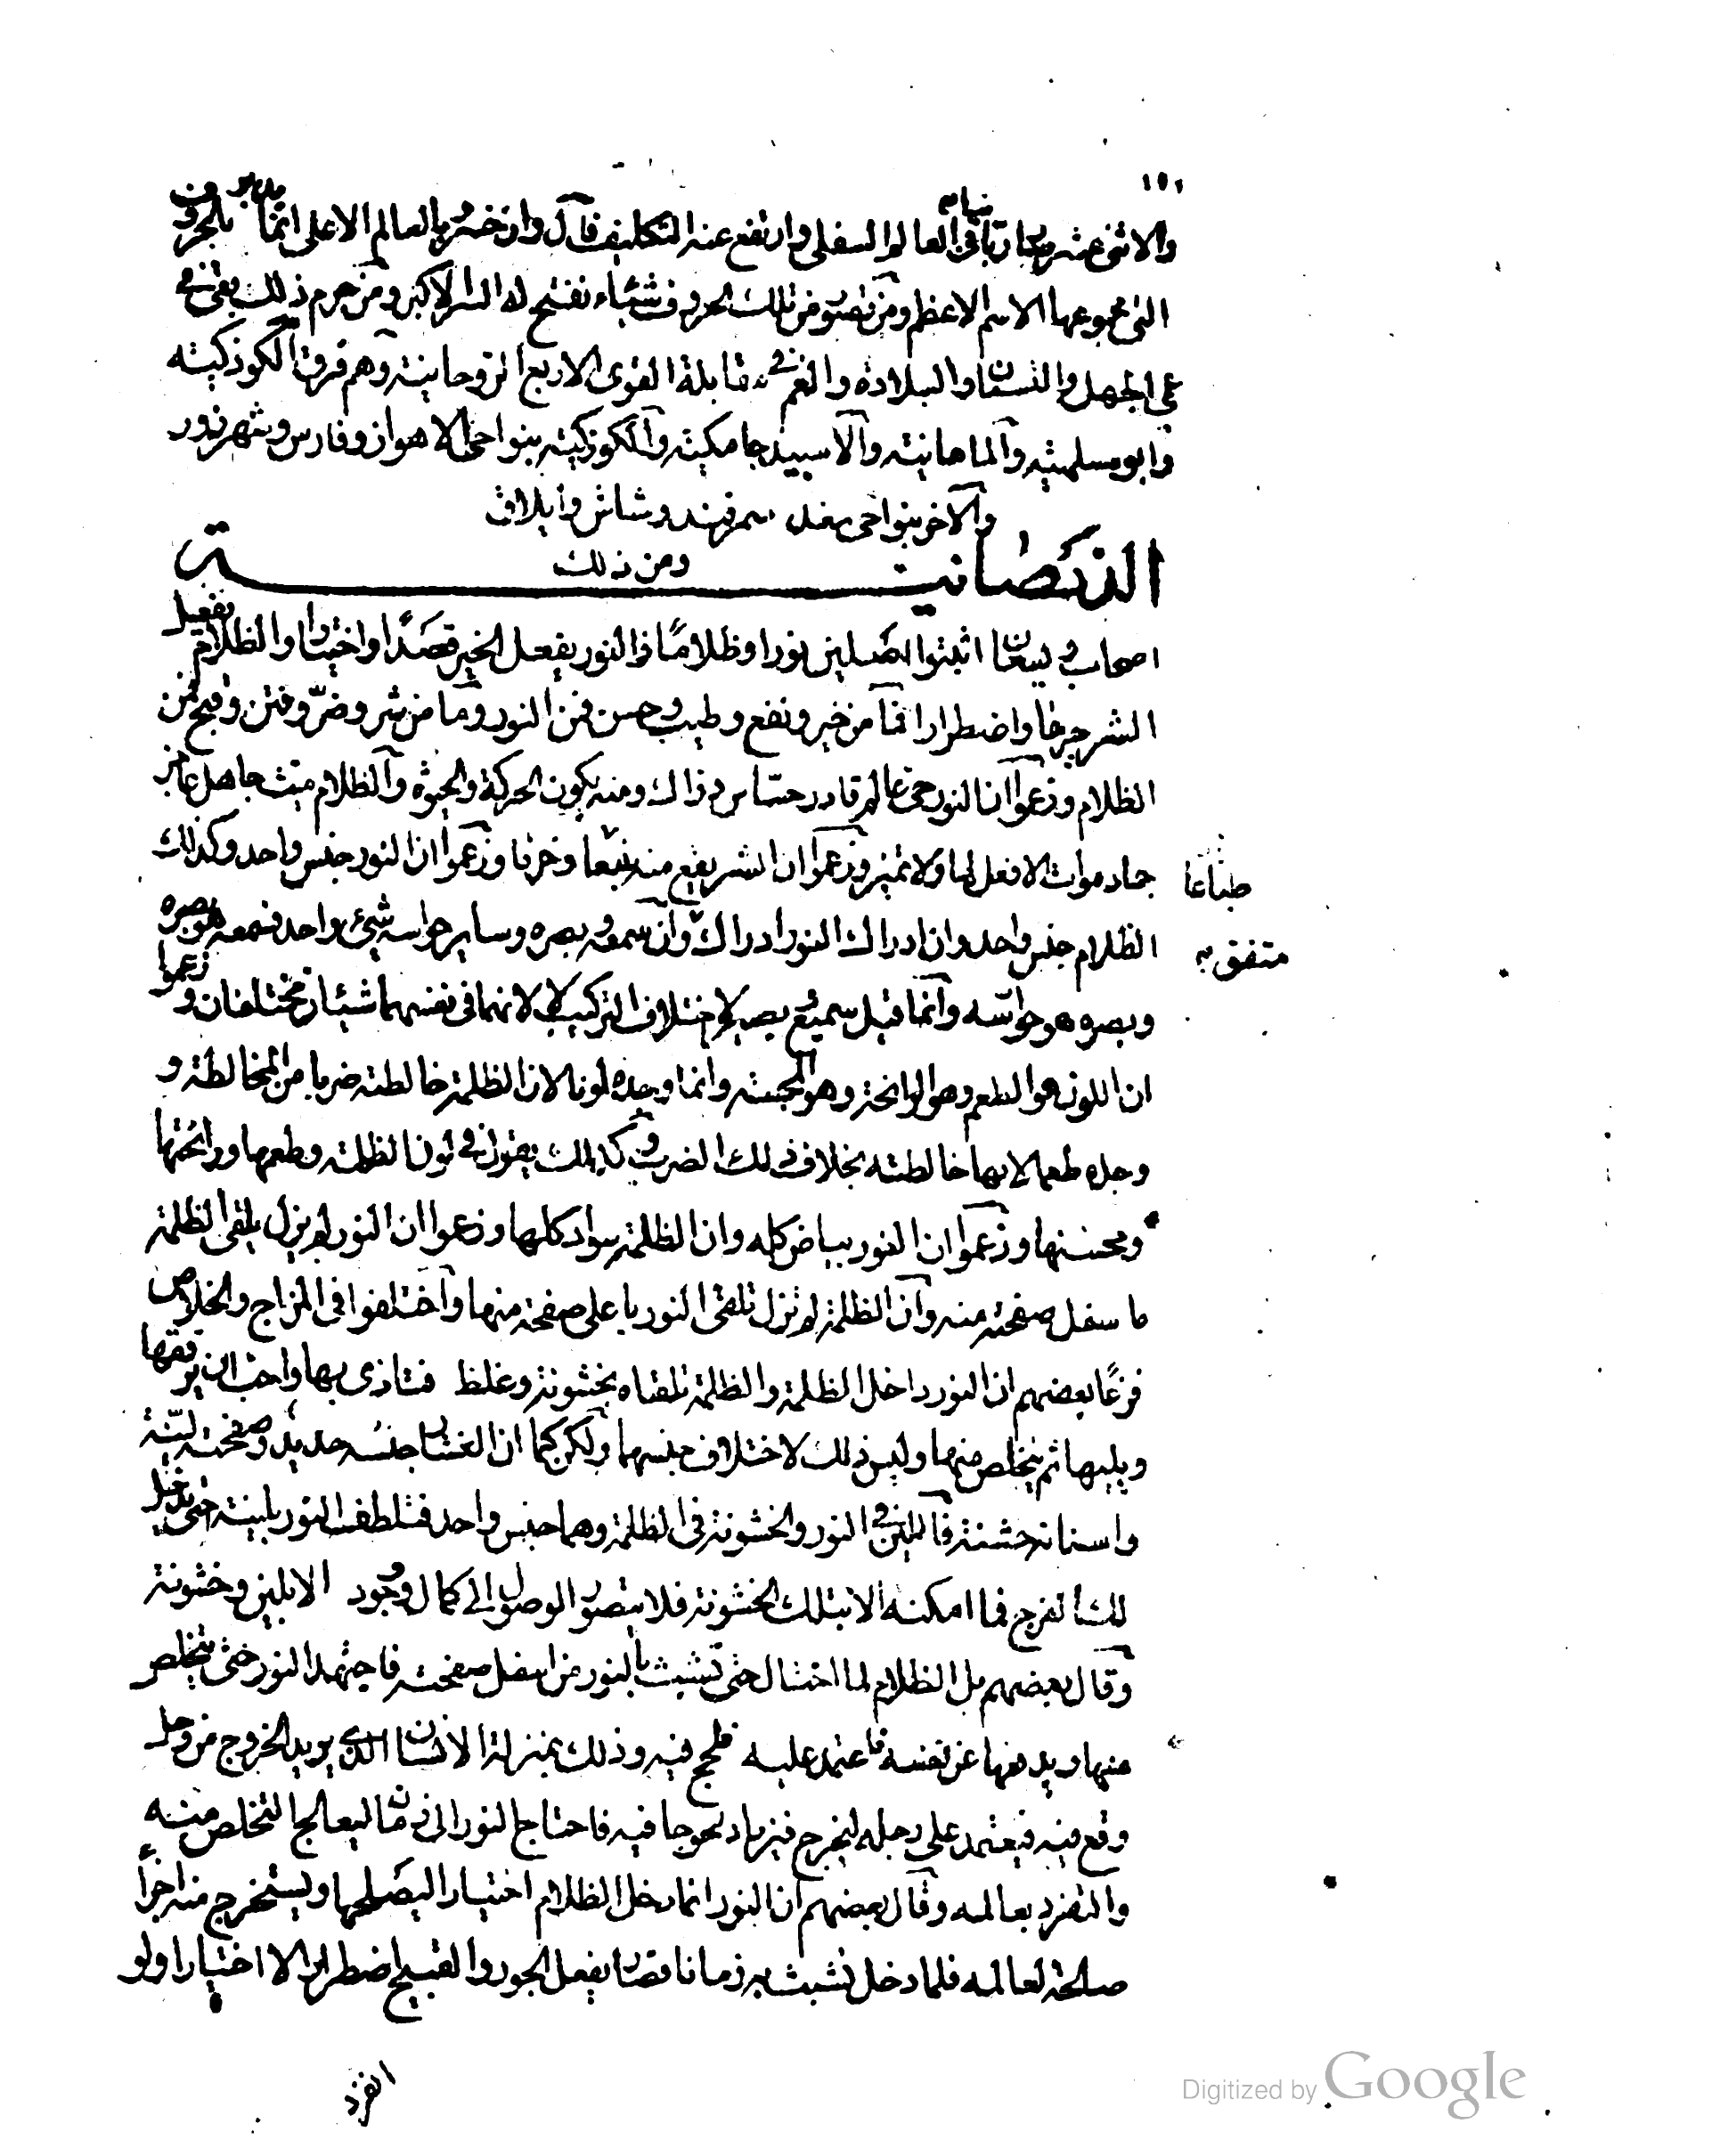 ١٥١
والاثنى عشر صار ربانيا فى العالم السفلى وارتفع عنه التكليف قال وان خسرو بالعالم الاعلى انما يدبر بالحروف
التى مجموعها الاسم الاعظم ومن تصور من تلك الحروف شيئاء نفتح له السر الاكبر ومن حرم ذلك بقى فى
عمى الجهل والنسيان والبلادة والغم فى مقابلة القوى الاربع الروحانية وهم فرق الكوذكية
وابو مسلمية والماهانية والاسبيد جامكية والكوذكية بنواحى الاهواز وفارس وشهرزور
والاخر بنواحى سغد سمرقند وشاش وايلاق
ومن ذلك
الديصانية
اصحاب ديصان اثبتوا اصلين نورا وظلاما فالنور يفعل الخير قصدا واختيارا والظلام يفعل
الشر طباعا واضطرارا فما من خير ونفع وطيب وحسن فمن النور وما من شر وضر ونتن وقبح فمن
الظلام وزعموا ان النور حى عالم قادر حساس دراك ومنه يكون الحركة والحيوة والظلام ميت جاهل عاجز
جماد موات لا فعل لها ولا تميز وزعموا ان الشر يقع منه طباعا وخرقا وزعموا ان النور جنس واحد وكذلك
طباعا
الظلام جنس واحد وان ادراك النور ادراك وان سمعه وبصره وساير حواسه شىء واحد فسمعه هو بصره
متفق
وبصره هو حواسه وانما قيل سميع بصير لاختلاف التركيب لا لانهما فى نفسهما شيئان مختلفان وزعموا
ان اللون هو الطعم وهو الرائحة وهو المجسة وانما وجده لونا لان الظلمة خالطته ضربا من المخالطة و
وجده طعما لانها خالطته بخلاف ذلك الضرب وكذلك يقول فى لون الظلمة وطعمها ورائحتها
ومجستها وزعموا ان النور بياض كله وان الظلمة سواد كلها وزعموا ان النور لم يزل يلقى الظلمة
باسفل صفحة منه وان الظلمة لم تزل تلقى النور باعلى صفحة منها واختلفوا فى المزاج والخلاص
فزعم بعضهم ان النور داخل الظلمة والظلمة تلقاه بخشونة وغلظ فتاذى بها واحب ان يرققها
ويلينها ثم يتخلص منها وليس ذلك لاختلاف جنسهما ولكن كما ان المنشار جنسه حديد وصفحته لينة
واسنانه خشنة فاللين فى النور والخشونة فى الظلمة وهما جنس واحد فتلطف النور بلينه حتى يدخل
تلك الفرج فما امكنه الا بتلك الخشونة فلا يتصور الوصول الى كمال وجود الا بلين وخشونة
وقال بعضهم بل الظلام لما احتال حتى تشبث بالنور من اسفل صفحته فاجتهد النور حتى يتخلص
منها ويدفعها عن نفسه فاعتمد عليه فلجج فيه وذلك بمنزلة الانسان الذى يريد الخروج من وحل
وقع فيه فيعتمد على رجله ليخرج فيزداد لحوجا فيه فاحتاج النور الى زمان ليعالج التخلص منه
والتفرد بعالمه وقال بعضهم ان النور انما دخل الظلام اختيارا ليصلحها ويستخرج منه اجزاء
صلحة لعالمه فلما دخل تشبث به زمانا فصار يفعل الجور والقبيح اضطرارا لا اختيارا ولو
انفرد
Digitized by Google